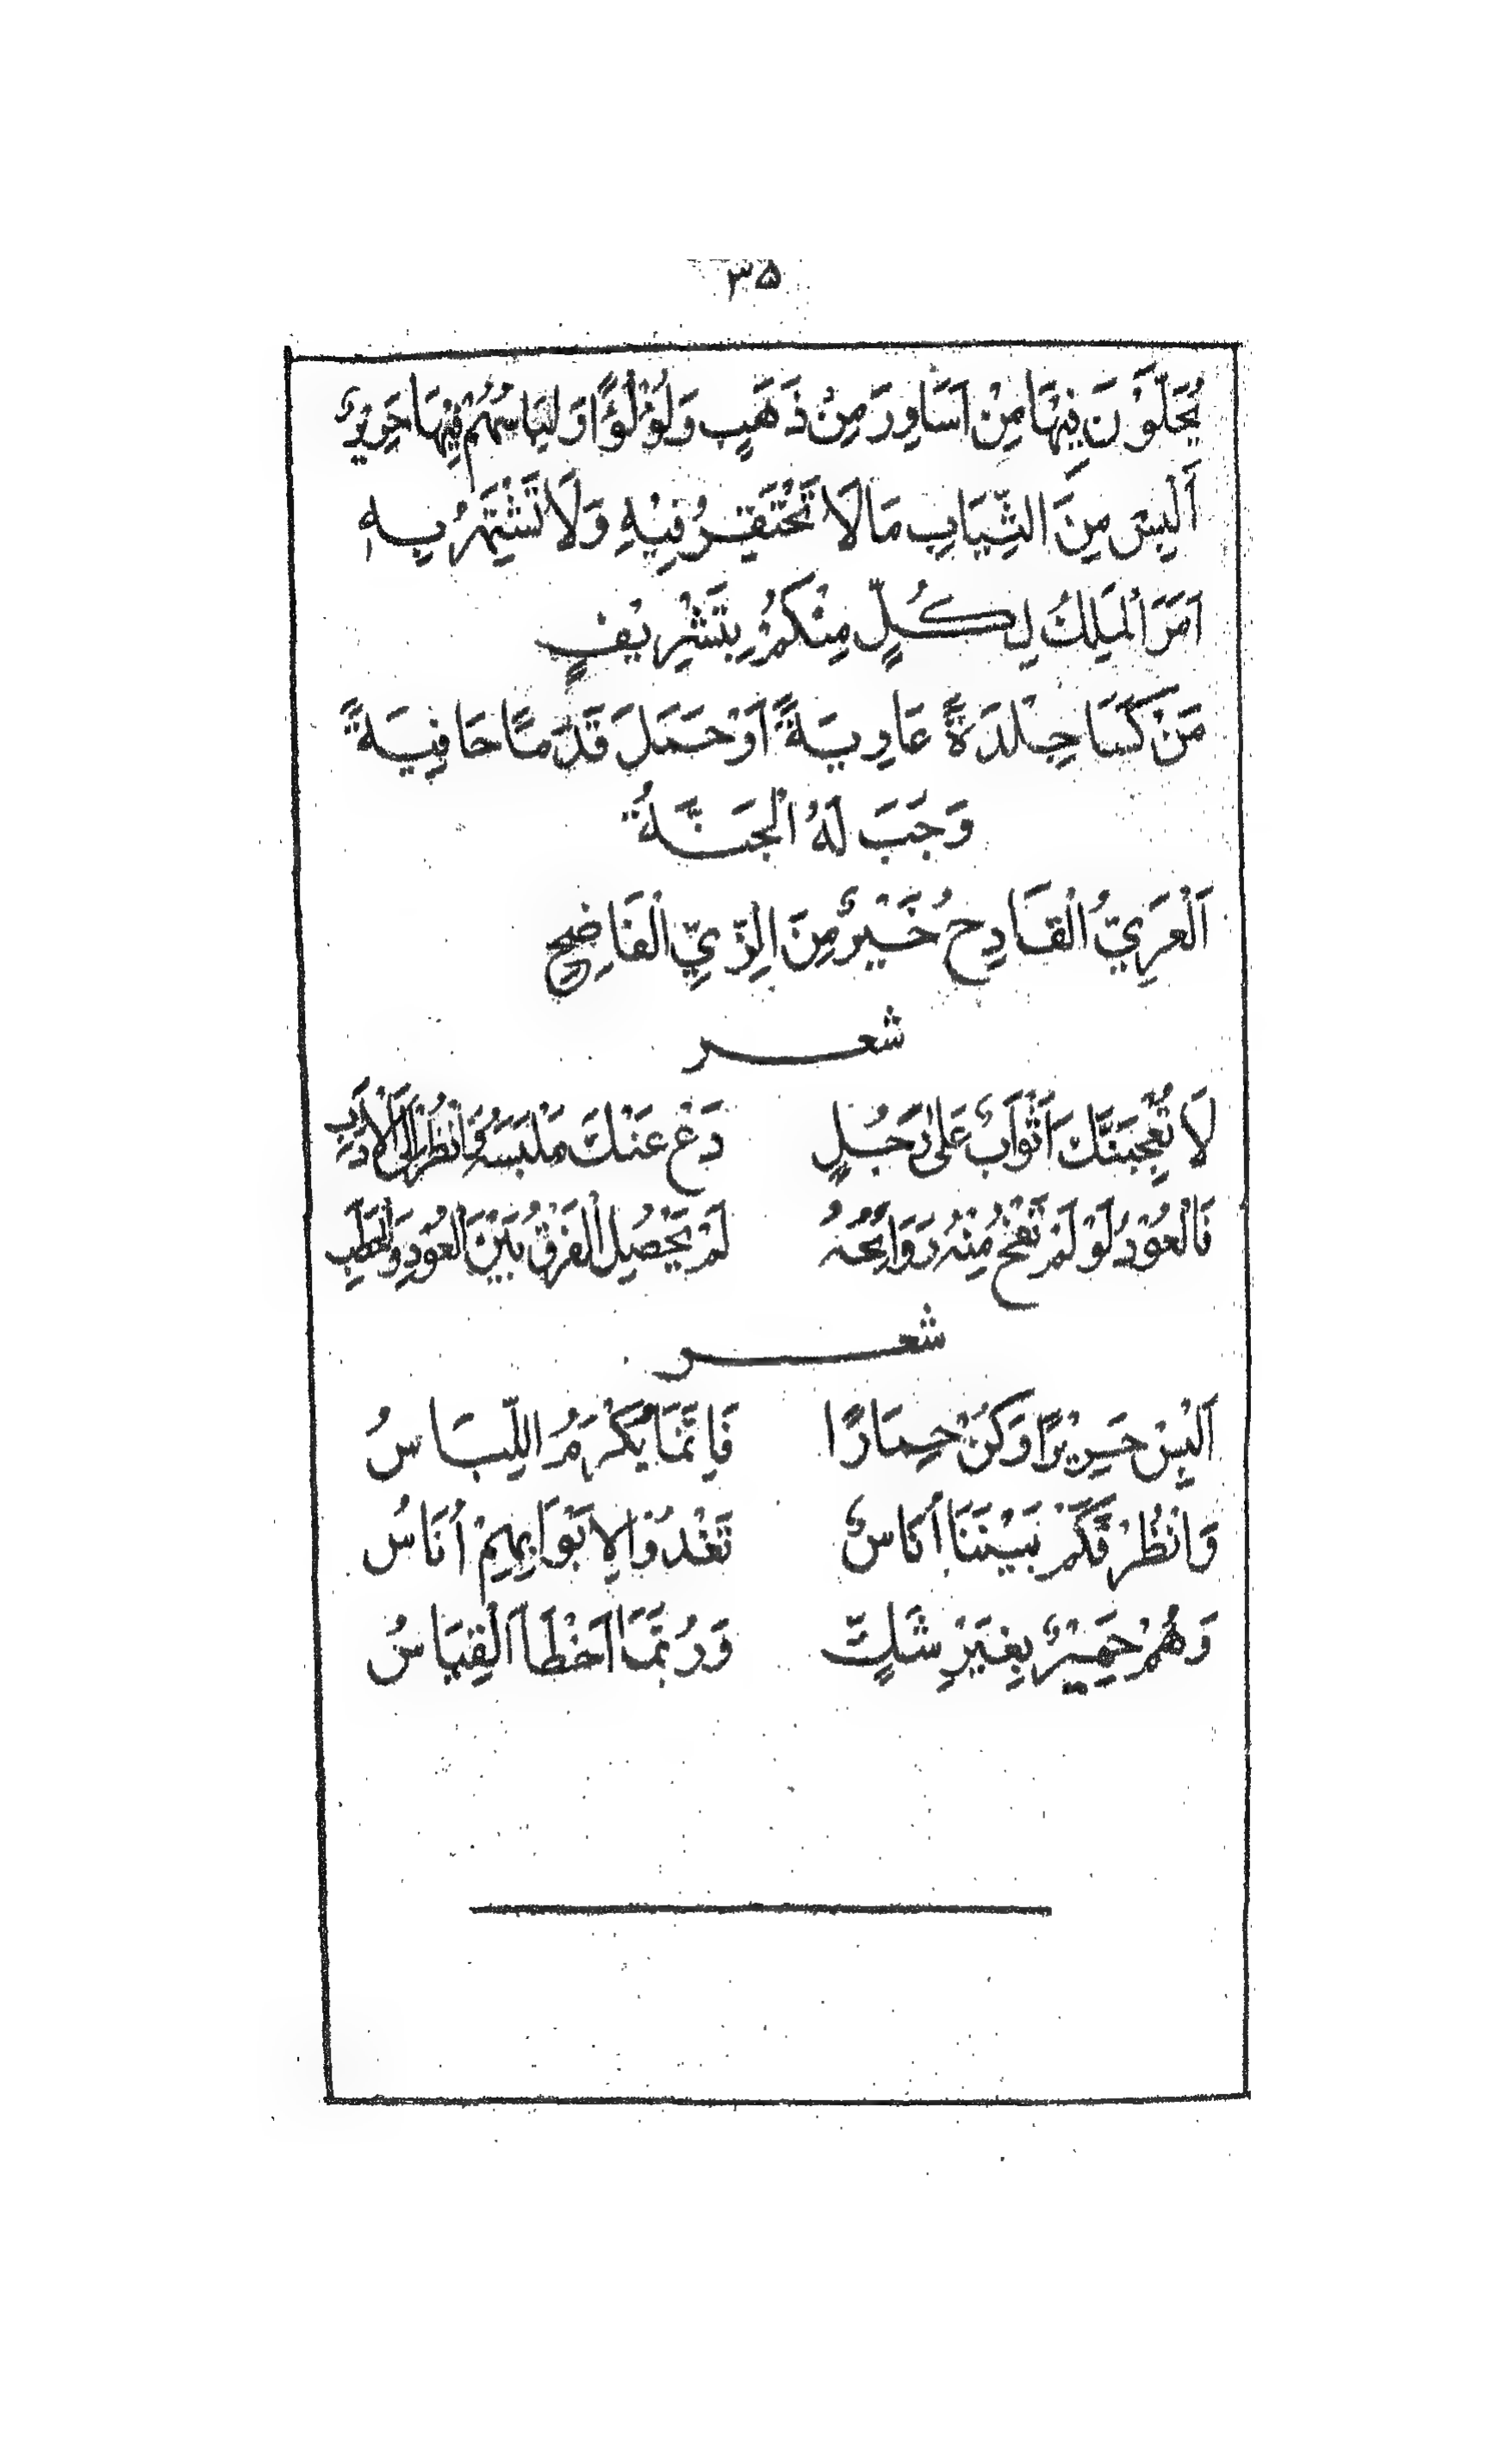 ۳۵
يُحَلَّوْنَ فِيْهَا مِنْ اَسَاوِرَ مِنْ ذَهَبٍ وَلُؤْلُؤًا وَلِبَاسُهُمْ فِيْهَا حَرِيْرٌ
اَلْبِسْ مِنَ الثِّيَابِ مَا لَا تَحْتَقِرُ فِيْهِ وَلَا تَشْتَهِرُ بِهِ
اَمَرَ الْمَلِكُ لِكُلٍّ مِنْكُمْ بِتَشْرِيْفٍ
مَنْ كَسَا جِلْدَةً عَارِيَةً اَوْ حَمَلَ قَدَمًا حَافِيَةً
وَجَبَ لَهُ الْجَنَّةُ
اَلْعَرِيُّ الْقَادِحُ خَيْرٌ مِنَ الزِّيِّ الْفَاضِحِ
شعر
لَا تُعْجِبَنَّكَ اَثْوَابٌ عَلٰى رَجُلٍ دَعْ عَنْكَ مَلْبَسَهُ وَانْظُرْ اِلَى الْاَدَبِ
فَالْعُوْدُ لَوْ لَمْ تَفُحْ مِنْهُ رَوَائِحُهُ لَمْ يَحْصُلِ الْفَرْقُ بَيْنَ الْعُوْدِ وَالْحَطَبِ
شعر
اَلْبِسْ حَرِيْرًا وَكُنْ حِمَارًا فَاِنَّمَا يُكْرَمُ اللِّبَاسُ
وَانْظُرْ فَكَمْ بَيْنَنَا اُنَاسٌ تَغْدُوْا لِاَبْوَابِهِمْ اُنَاسُ
وَهُمْ حَمِيْرٌ بِغَيْرِ شَكٍّ وَرُبَّمَا اَخْطَأَ الْقِيَاسُ